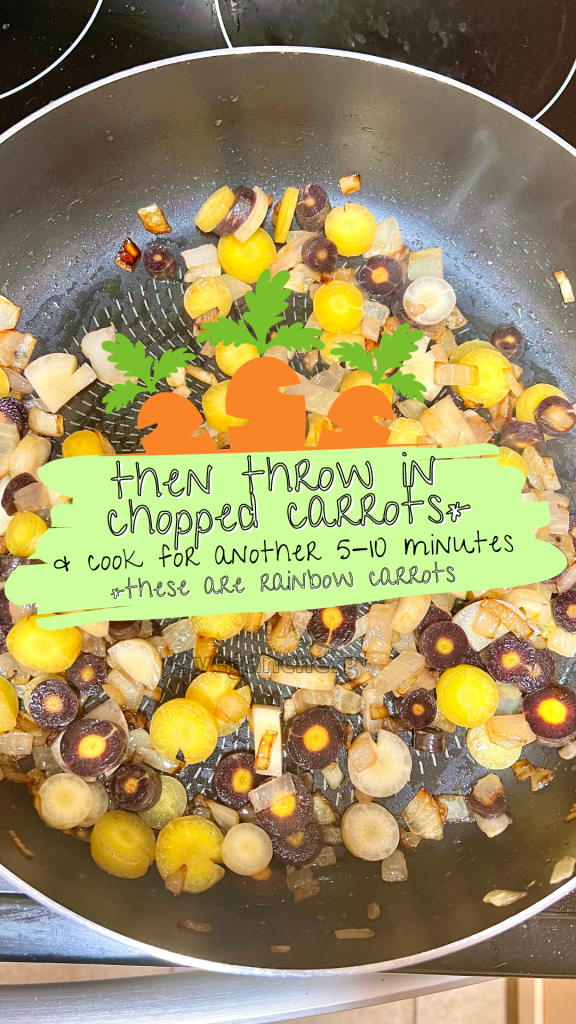 then throw in
chopped carrots*
& cook for another 5-10 minutes
*these are rainbow carrots